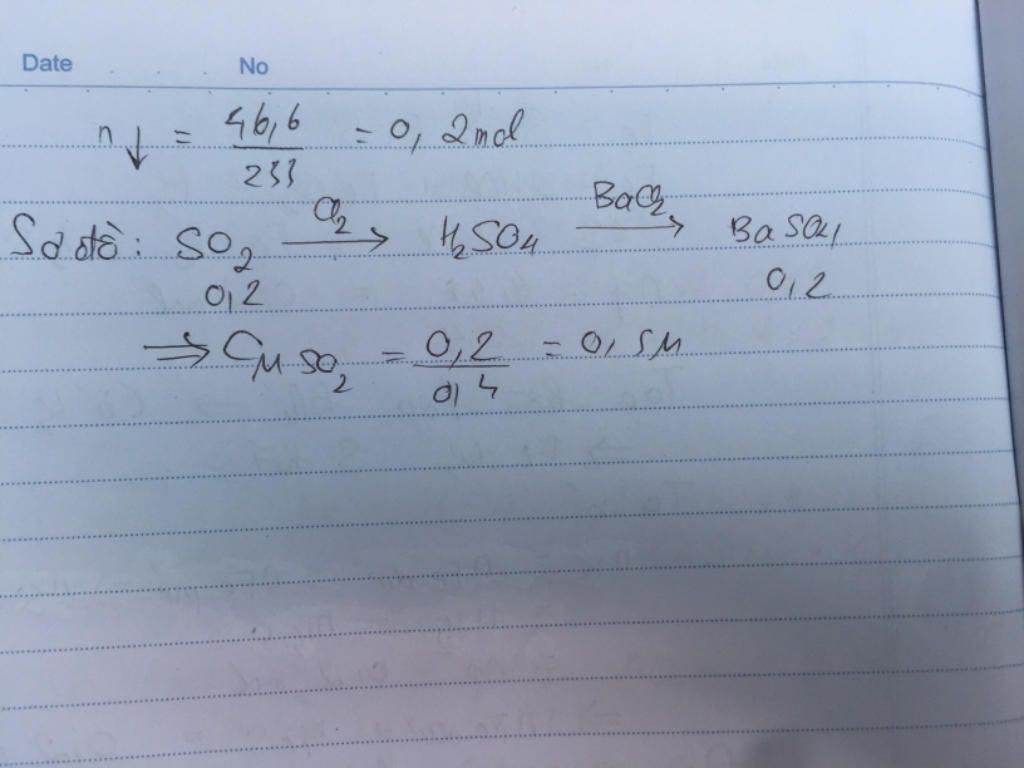 Date No
n↓ = 46,6 / 233 = 0,2 mol
Sơ đồ: SO2 Cl2→ H2SO4 BaCl2→ BaSO4
0,2 0,2
⇒ CM SO2 = 0,2 / 0,4 = 0,5M